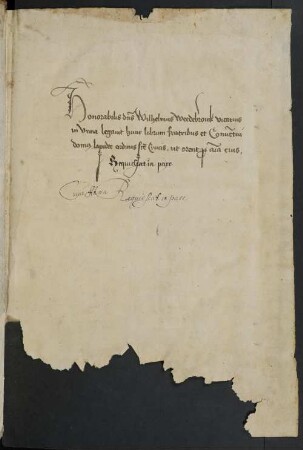 Honorabilis dns Wilhelmus Werdebrouk vicarius
in Unna legavit hunc librum fratribus et Conventui
domus lapidee ordinis scē Crucis, ut orent p aīa eius,
Requiescat in pace
Cuius Aīa Requiescat in pace